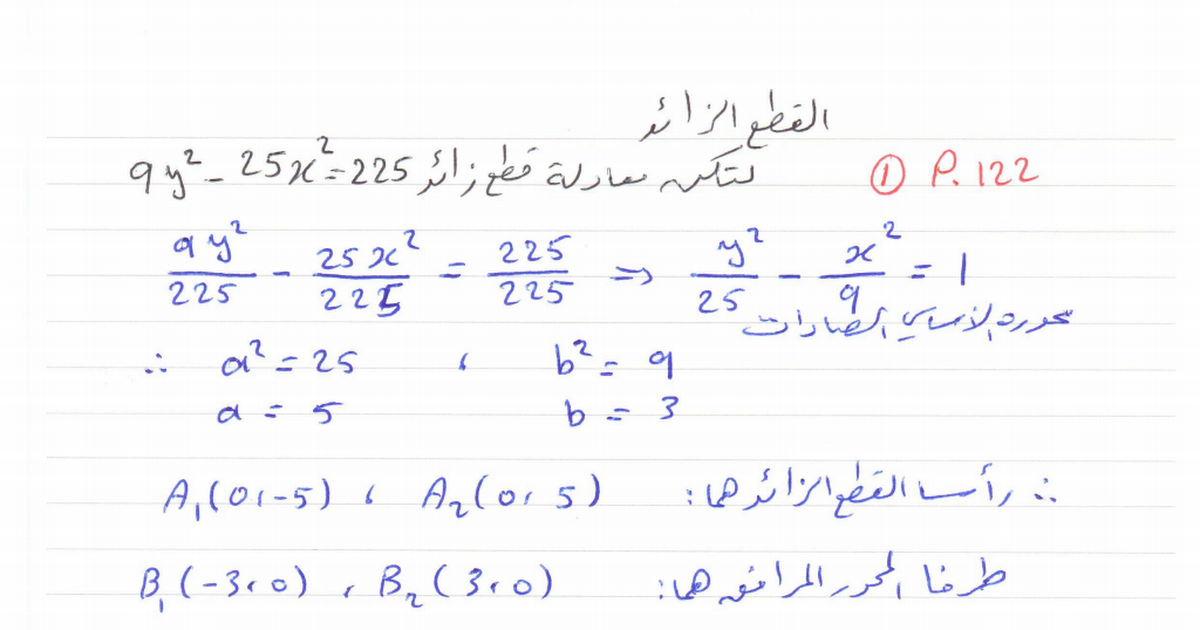 القطع الزائد
① P. 122 لتكن معادلة قطع زائد 9y² - 25x² = 225
9y²/225 - 25x²/225 = 225/225 => y²/25 - x²/9 = 1
محوره الأساسي الصادات
∴ a² = 25 ، b² = 9
a = 5 b = 3
∴ رأسا القطع الزائد هما: A₁(0،-5) ، A₂(0، 5)
طرفا المحور المرافق هما: B₁(-3،0) ، B₂(3،0)